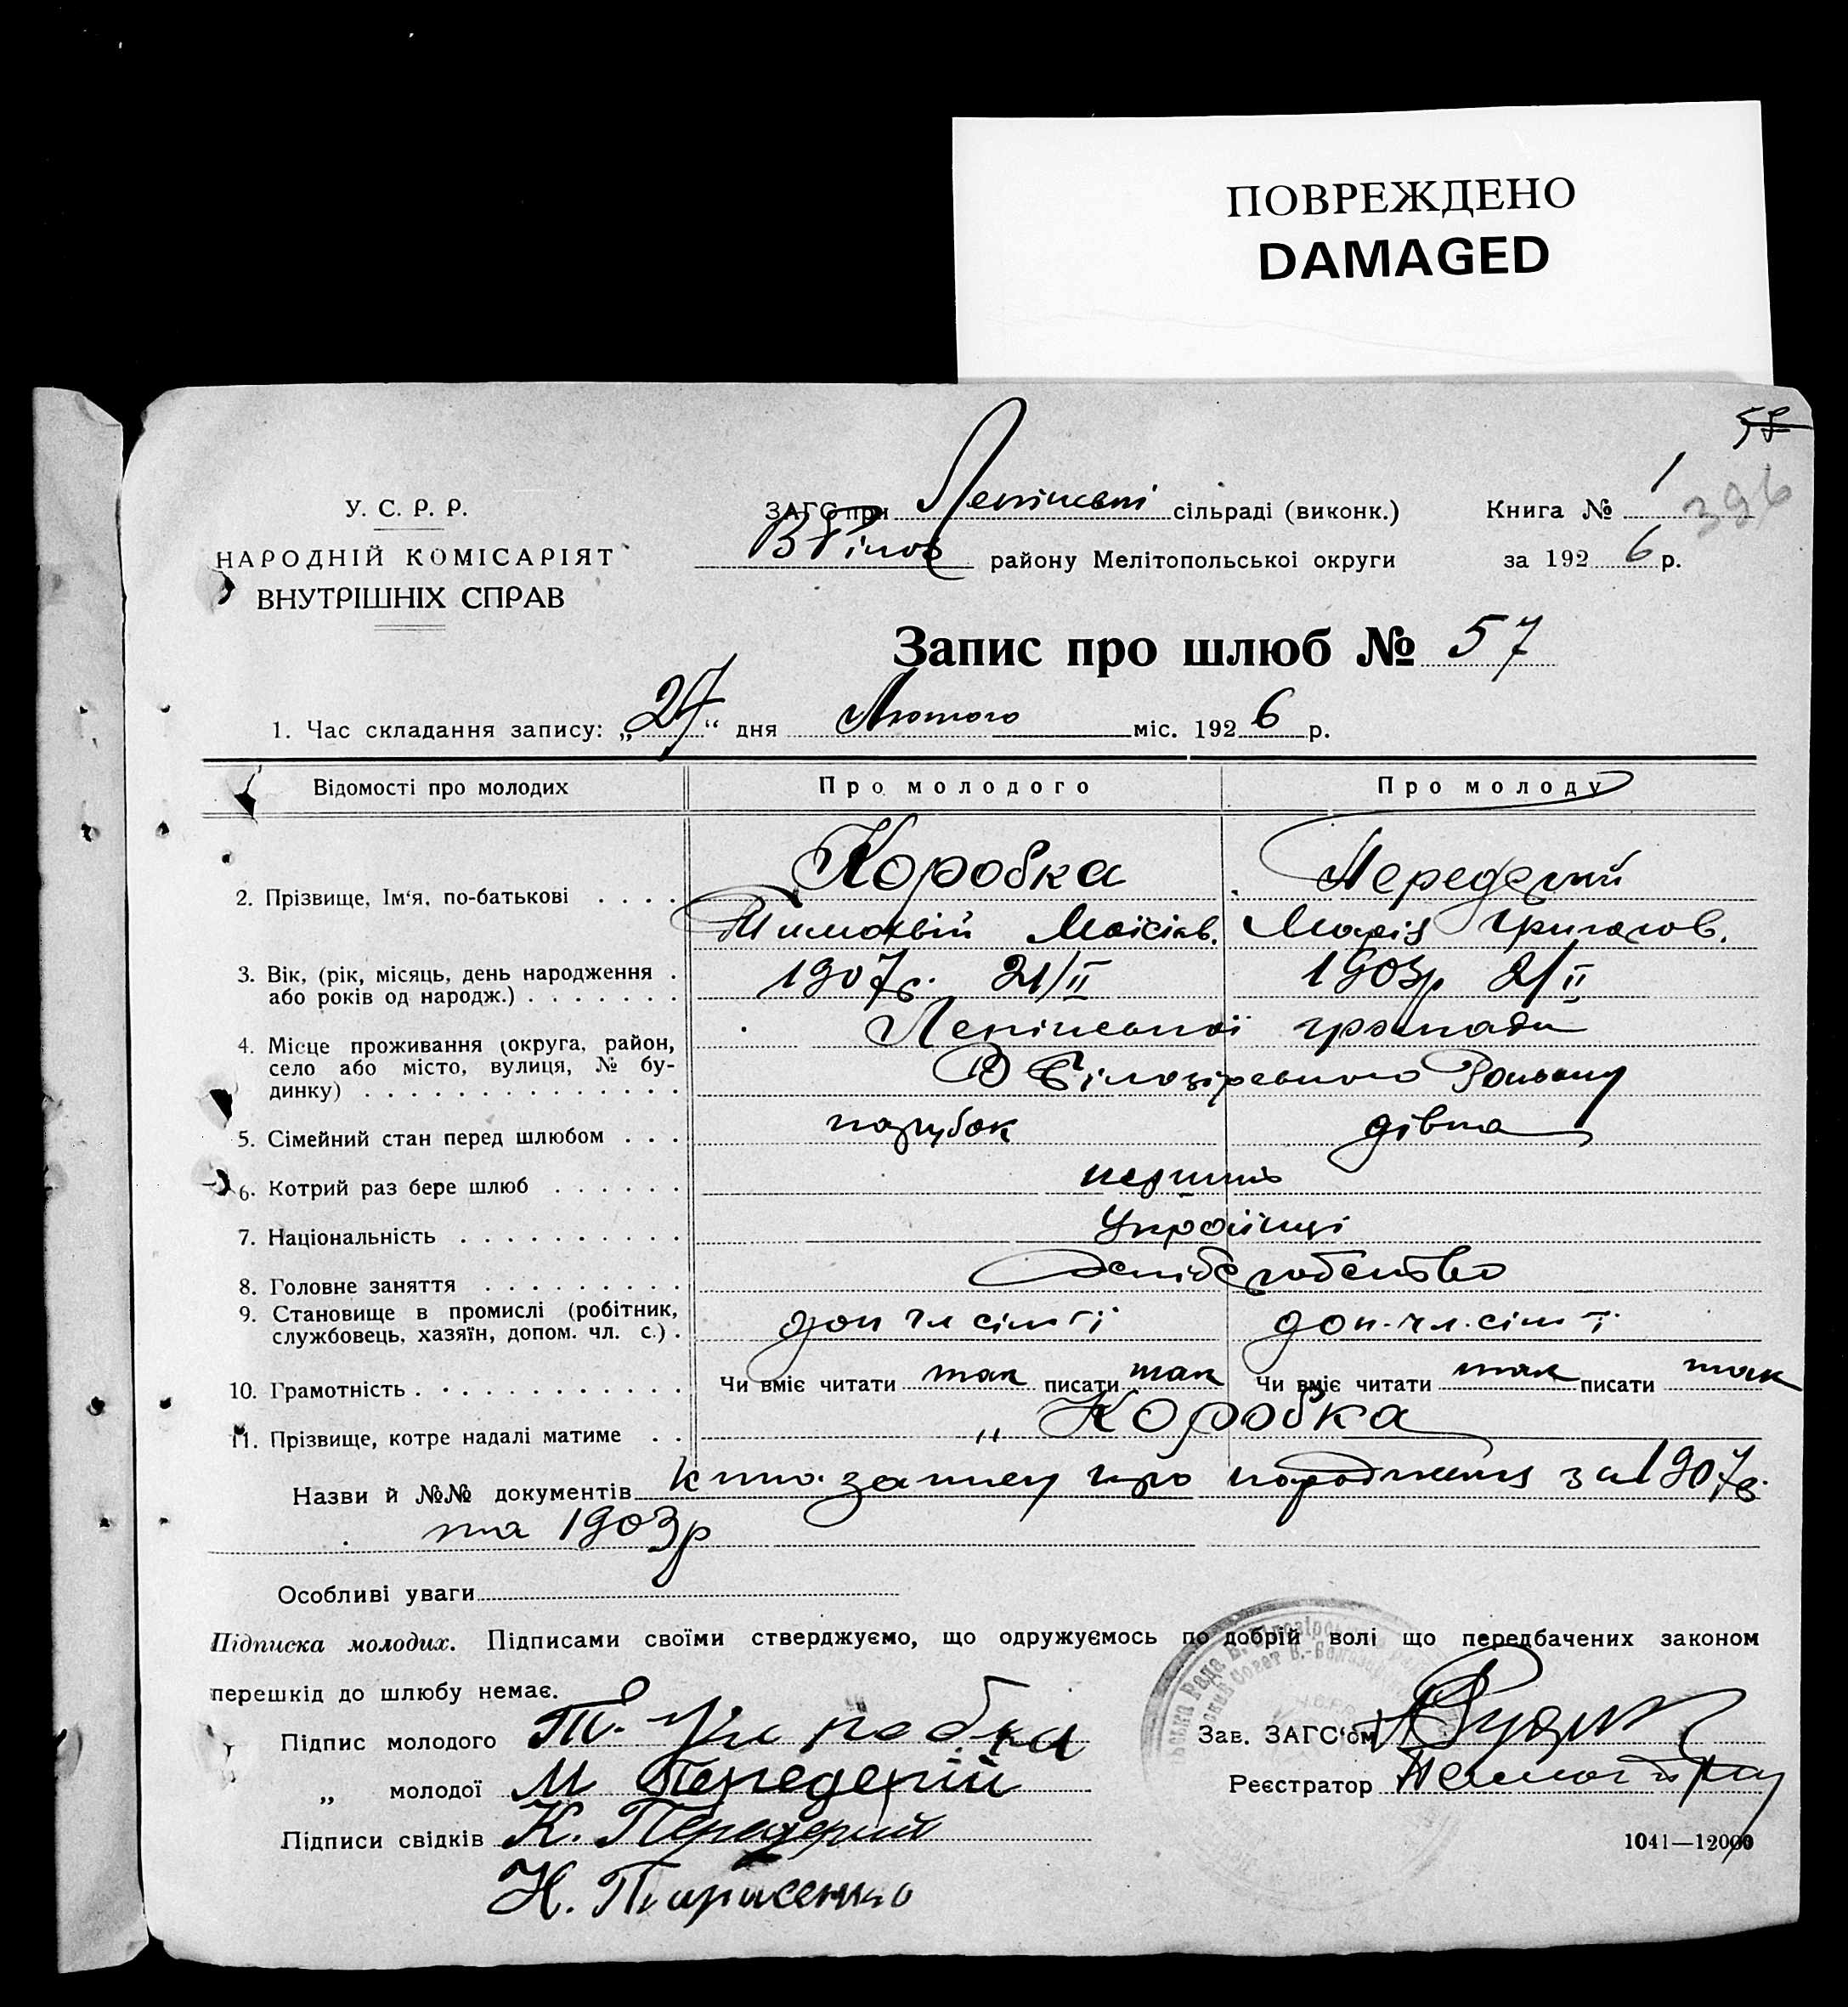 ПОВРЕЖДЕНО
DAMAGED
57
396
У. С. Р. Р.
НАРОДНІЙ КОМІСАРІЯТ
ВНУТРІШНІХ СПРАВ
ЗАГС при Ленінській сільраді (виконк.)
В Білоз району Мелітопольськоі округи
Книга № 1
за 1926 р.
Запис про шлюб № 57
1. Час складання запису: „27“ дня Лютого міс. 1926 р.
Відомості про молодих Про молодого Про молоду
2. Прізвище, Ім‘я, по-батькові . . . . Коробка Передерій
Тимофій Моісієв. Марія Григоров.
3. Вік, (рік, місяць, день народження . 1907р. 21/II 1903р 2/II
або років од народж.) . . . . . . .
4. Місце проживання (округа, район, Ленінської громади
село або місто, вулиця, № бу- В Білозірського Району
динку) . . . . . . . . . . . . . .
5. Сімейний стан перед шлюбом . . . парубок дівка
6. Котрий раз бере шлюб . . . . . . перший
7. Національність . . . . . . . . . . Українці
8. Головне заняття . . . . . . . . .
9. Становище в промислі (робітник, доп чл сім'ї доп. чл. сім'ї
службовець, хазяїн, допом. чл. с.) .
10. Грамотність . . . . . . . . . . . . Чи вміє читати так писати так Чи вміє читати так писати так
11. Прізвище, котре надалі матиме . . „ Коробка
Назви й №№ документів запису про народження за 1907р.
та 1903р
Особливі уваги
Підписка молодих. Підписами своїми стверджуємо, що одружуємось по добрій волі що передбачених законом
перешкід до шлюбу немає.
Підпис молодого Т. Коробка
„ молодої М Передерій
Підписи свідків К. Передерий
Н. Тарасенко
Зав. ЗАГС‘ом
Реєстратор
1041—12000